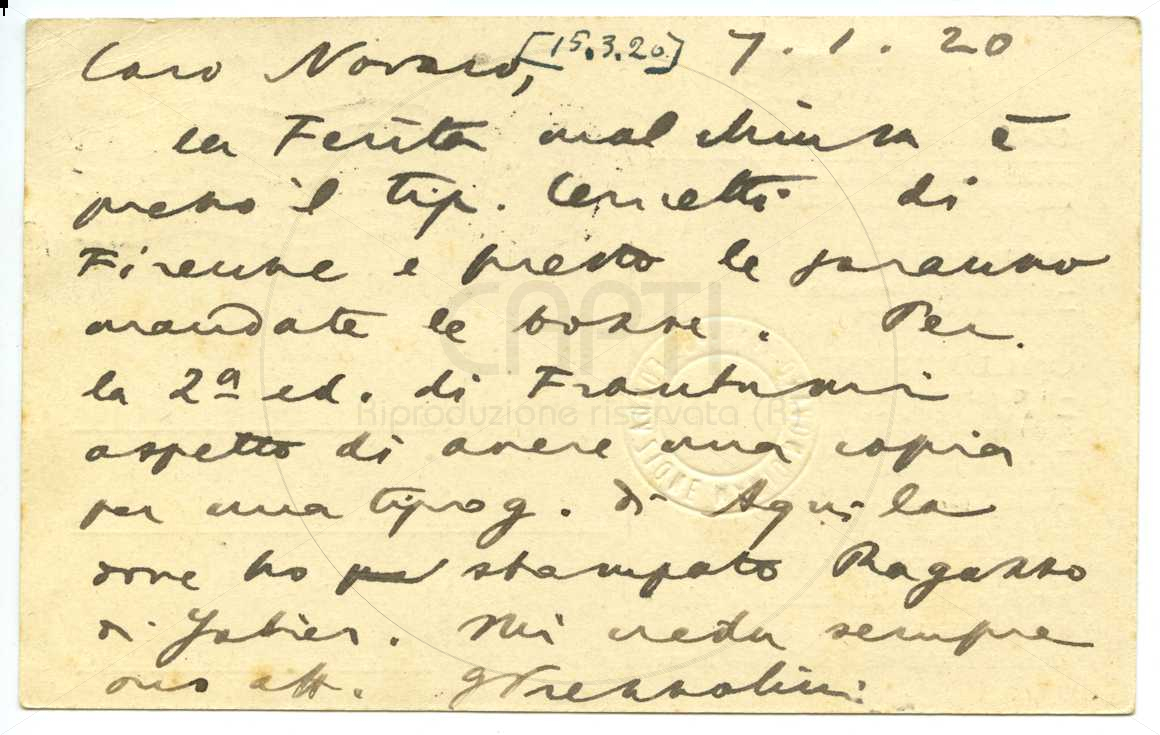 Caro Novaro, [15.3.20] 7.1.20
la Ferita mal chiusa è
presso il tip. di
Firenze e presto le saranno
mandate le bozze. Per
la 2ª ed. di Frantumi
aspetto di avere una copia
per una tipog. di Aquila
dove ho stampato Ragazzo
di Jahier. Mi creda sempre
suo aff. GPrezzolini
CAPTI
Riproduzione riservata (R)